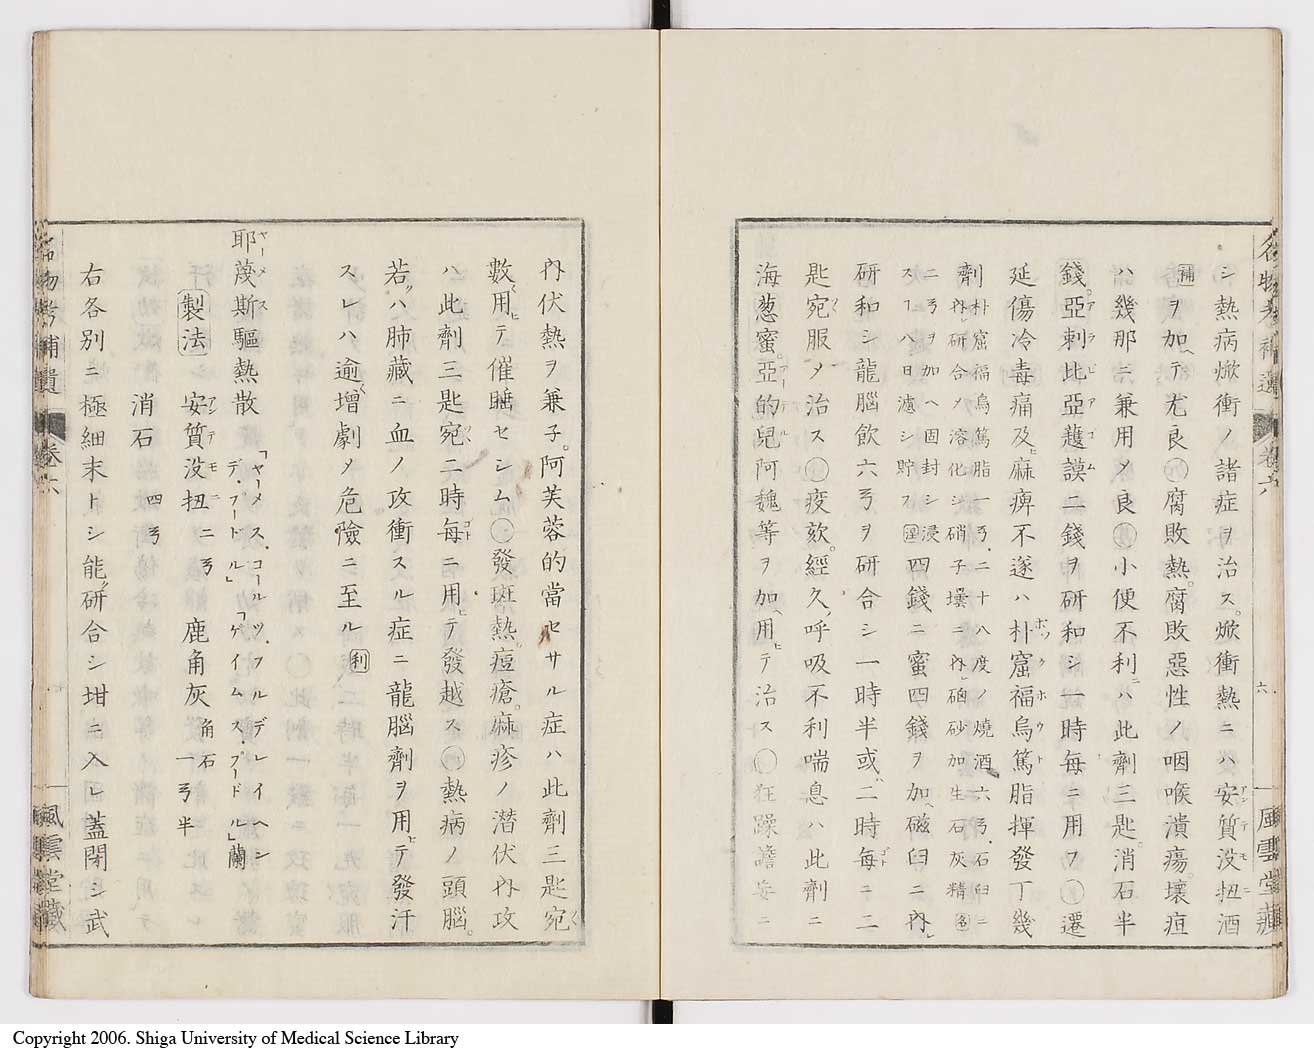 名物考補遺 巻六 六 風雲堂藏
シ熱病焮衝ノ諸症ヲ治ス。焮衝熱ニハ安質没扭酒
補ヲ加ヘテ尤良○腐敗熱。腐敗惡性ノ咽喉潰瘍。壞疽
ハ幾那ニ兼用メ良○小便不利ニハ此劑三匙。消石半
錢。亞剌比亞護謨二錢ヲ研和シ一時毎ニ用フ○遷
延傷冷毒痛及ヒ麻痺不遂ハ朴窟福烏篤脂揮發丁幾
劑朴窟福烏篤脂一弓、二十八度ノ燒酒六弓、石臼ニ
内研合メ溶化シ硝子壜ニ内レ硇砂加生石灰精
二弓ヲ加ヘ固封シ浸
スフ八日濾シ貯ス
四錢ニ蜜四錢ヲ加ヘ磁臼ニ内レ
研和シ龍腦飲六弓ヲ研合シ一時半或ハ二時毎ニ二
匙宛服メ治ス○疫欬。經久ノ呼吸不利喘息ハ此劑ニ
海葱蜜。亞的兒阿魏等ヲ加ヘ用ヒテ治ス○狂躁譫妄ニ
内伏熱ヲ兼子。阿芙蓉的當セサル症ハ此劑三匙宛
數〻用ヒテ催睡セシム○發斑熱。痘瘡。麻疹ノ潜伏内攻
ハ此劑三匙宛二時毎ニ用ヒテ發越ス○熱病ノ頭腦。
若クハ肺藏ニ血ノ攻衝スル症ニ龍腦劑ヲ用ヒテ發汗
スレハ逾〻増劇メ危險ニ至ル利
耶蔑斯驅熱散「ヤーメス.コールツ.フルデレイヘンデ.プードル」「ゲイムス.プードル」蘭
製法 安質没扭二弓 鹿角灰角石一弓半
消石 四弓
右各別ニ極細末トシ能ク研合シ坩ニ入レ蓋閉シ武
名物考補遺 巻六 風雲堂藏
Copyright 2006. Shiga University of Medical Science Library